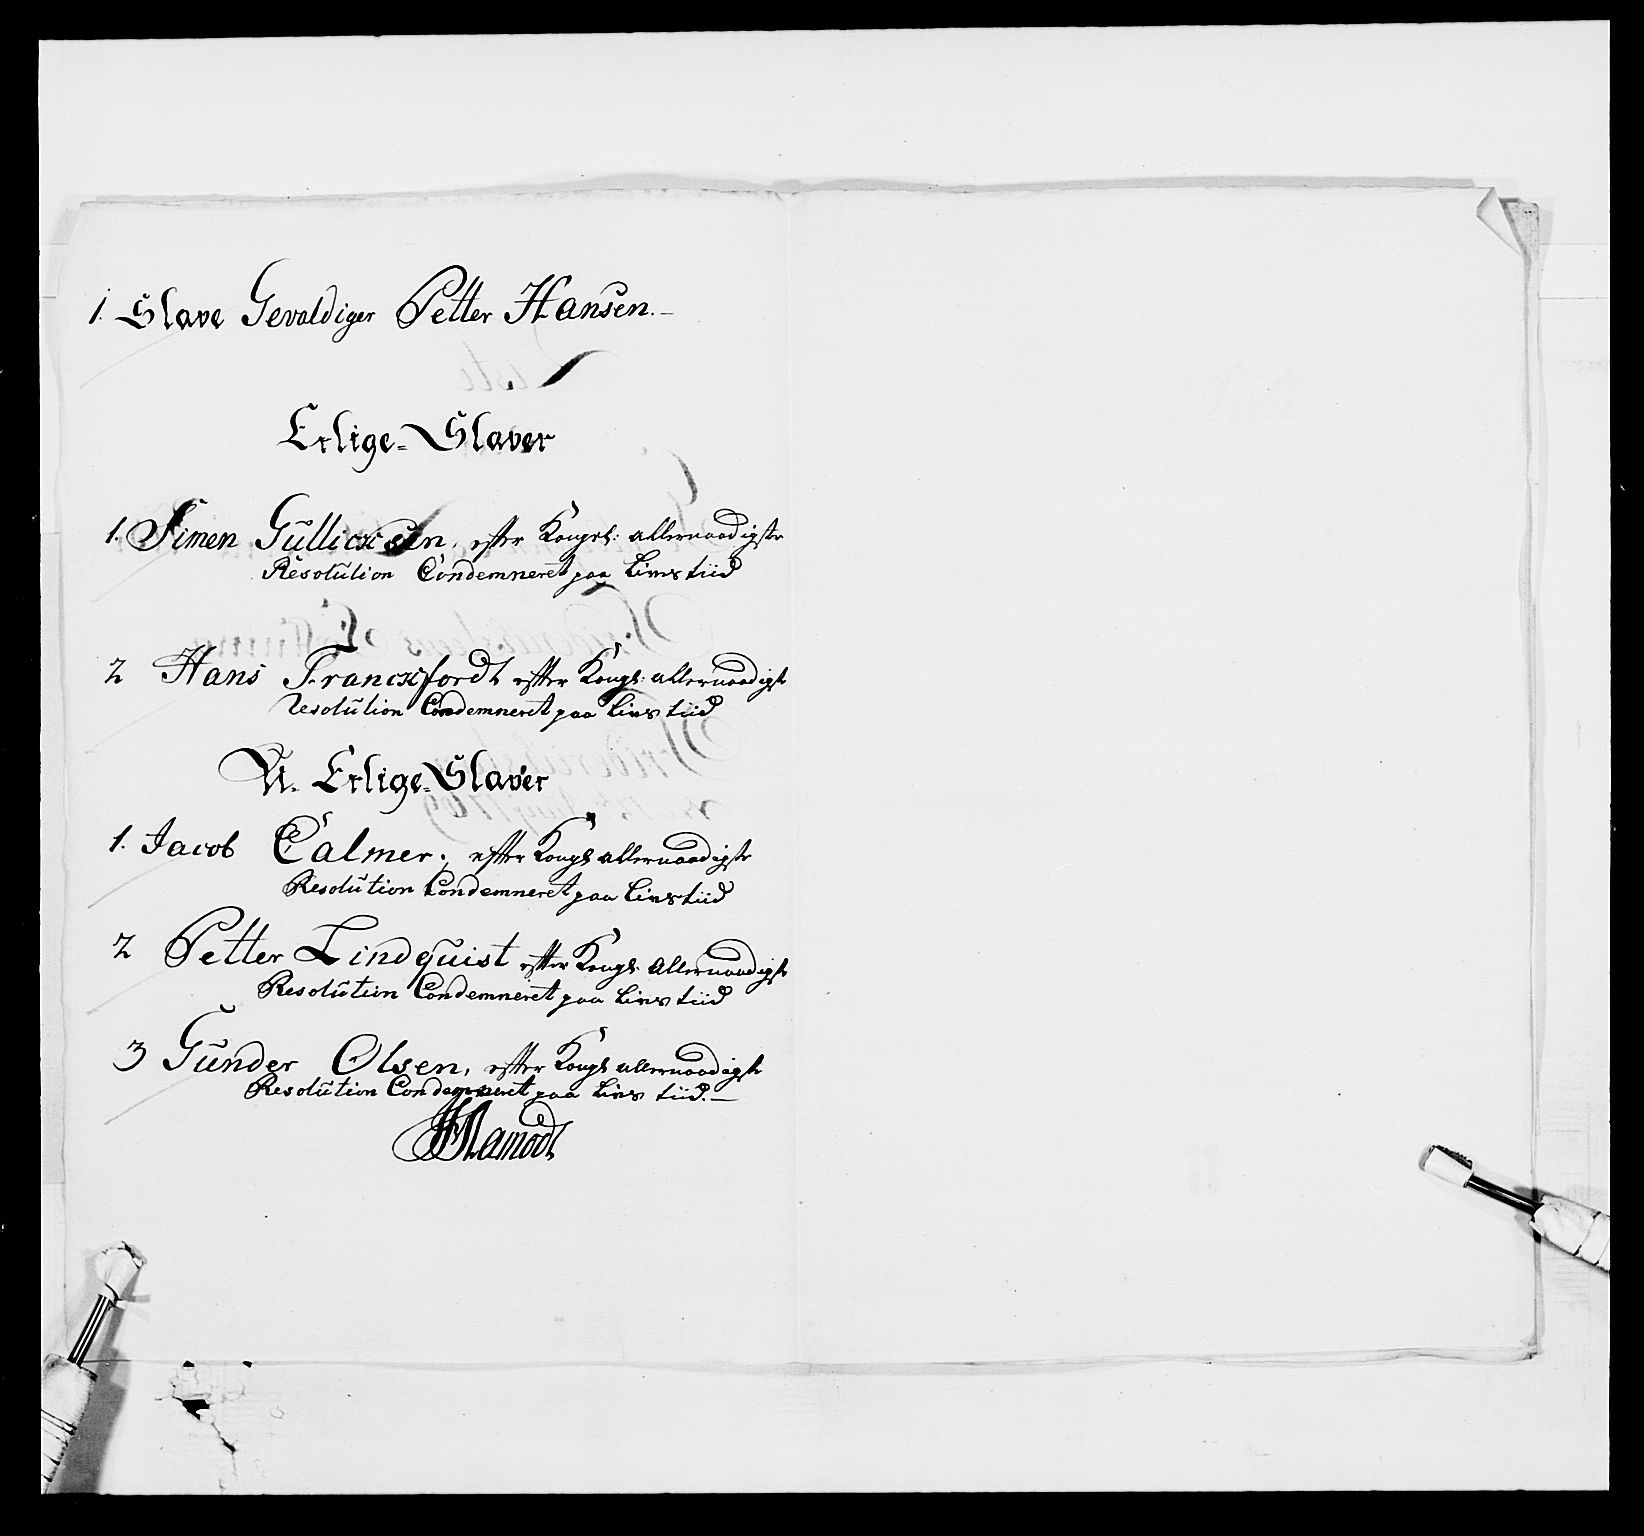 1. Slave Gevaldiger Petter Hansen.
Erlige-Slaver
1. Simen Gullicksen, efter Kongel: allernaadigste
Resolution Condemneret paa Livs tiid
2 Hans Franckfordt efter Kongl: allernaadigste
resolution Condemneret paa Livs tiid
U-Erlige-Slaver
1. Jacob Calmer, efter Kongl allernaadigste
Resolution Condemneret paa Livs tiid
2 Petter Lindquist efter Kongl: allernaadigste
Resolution Condemneret paa Livs tiid
3 Gunder Olsen, efter Kongl allernaadigste
Resolution Condemneret paa Livs tiid.